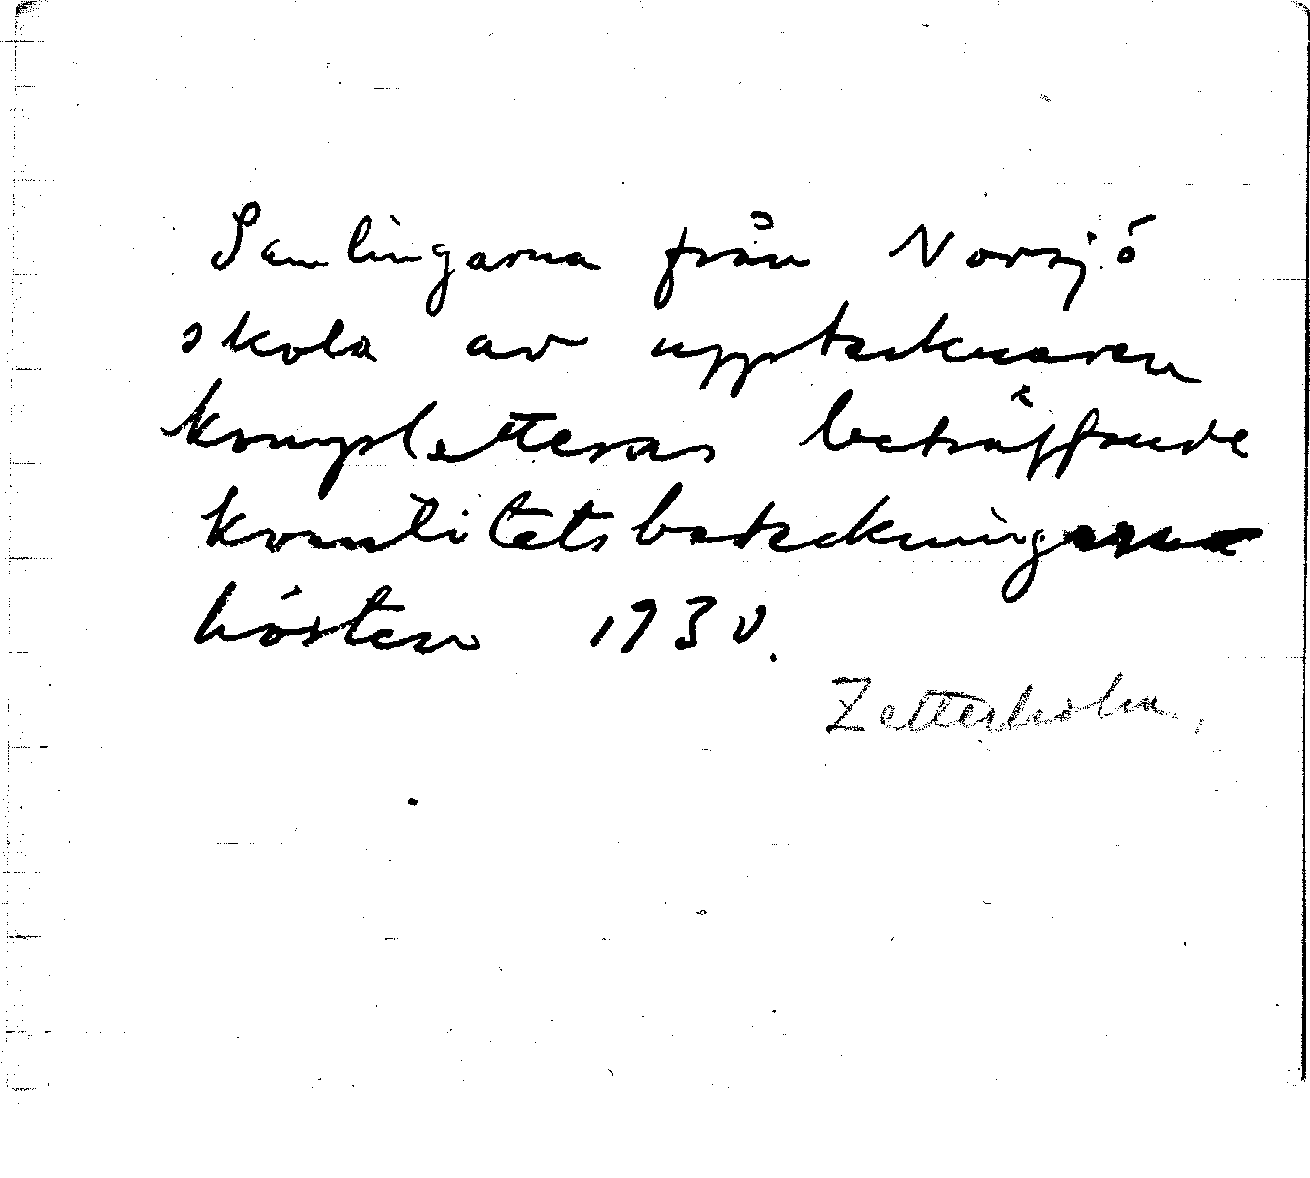 Samlingarna från Norsjö
skola av upptecknaren
kompletteras beträffande
kvalitetsbeteckningarna
hösten 1930.
Zetterholm.